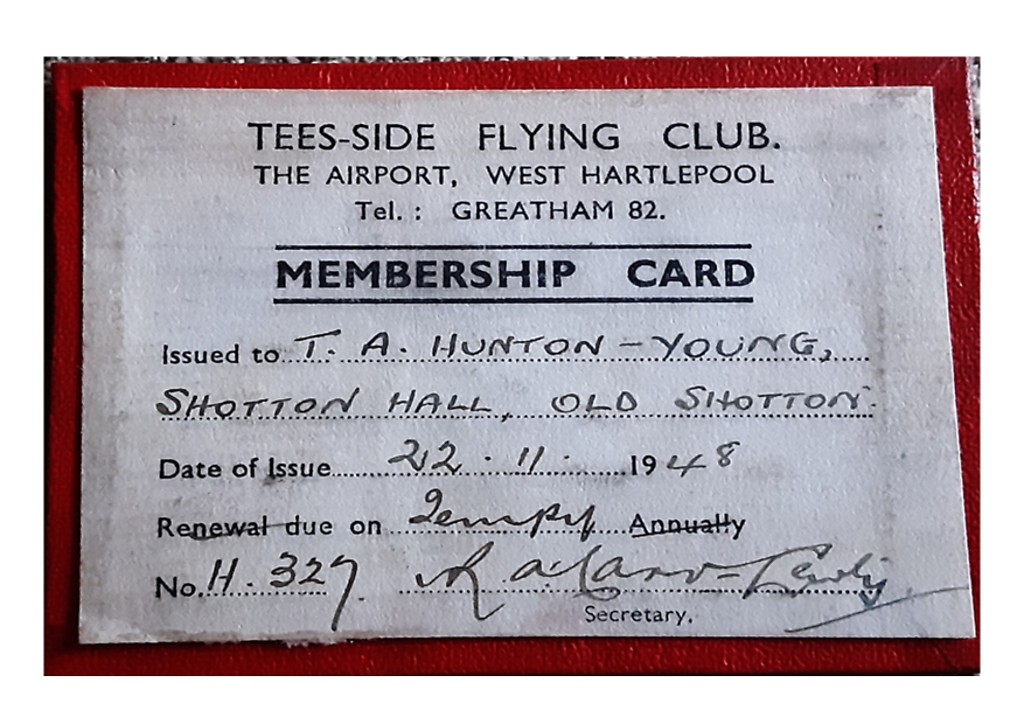 TEES-SIDE FLYING CLUB.
THE AIRPORT, WEST HARTLEPOOL
Tel. : GREATHAM 82.
MEMBERSHIP CARD
Issued to T. A. HUNTON - YOUNG,
SHOTTON HALL, OLD SHOTTON.
Date of Issue 22 . 11 . 1948
Renewal due on Annually
No. H. 327.
Secretary.